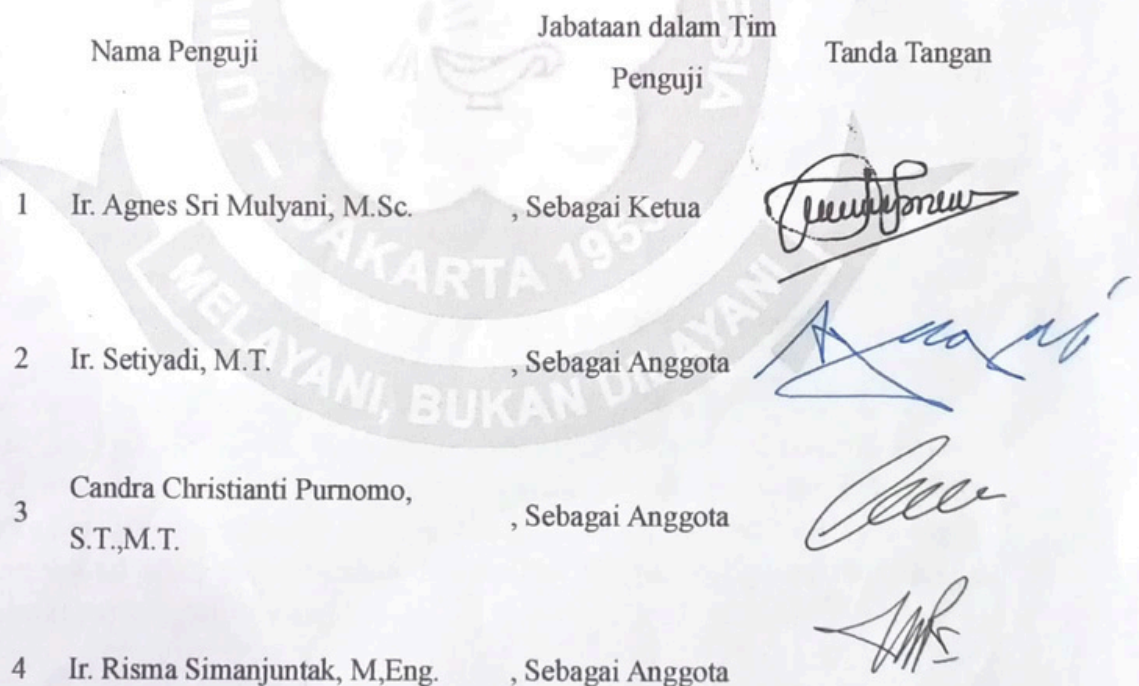 Nama Penguji
Jabataan dalam Tim
Penguji
Tanda Tangan
1 Ir. Agnes Sri Mulyani, M.Sc. , Sebagai Ketua
2 Ir. Setiyadi, M.T. , Sebagai Anggota
3 Candra Christianti Purnomo,
S.T.,M.T. , Sebagai Anggota
4 Ir. Risma Simanjuntak, M,Eng. , Sebagai Anggota
JAKARTA 1953
MELAYANI, BUKAN DILAYANI